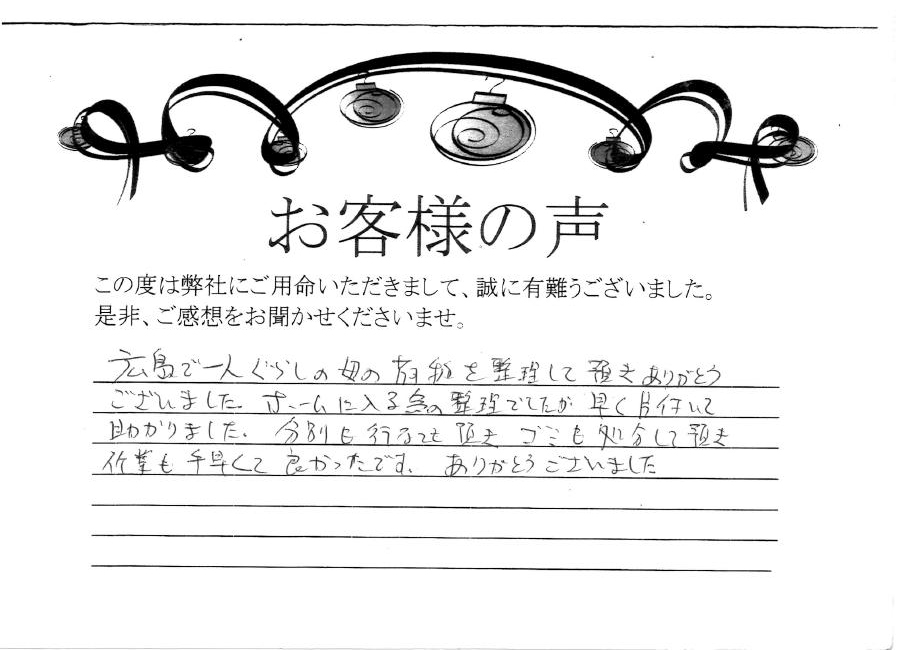 お客様の声
この度は弊社にご用命いただきまして、誠に有難うございました。
是非、ご感想をお聞かせくださいませ。
広島で一人ぐらしの母の荷物を整理して頂きありがとう
ございました。ホームに入る為の整理でしたが早く片付いて
助かりました。分別も行なって頂きゴミも処分して頂き
作業も手早くて良かったです。ありがとうございました